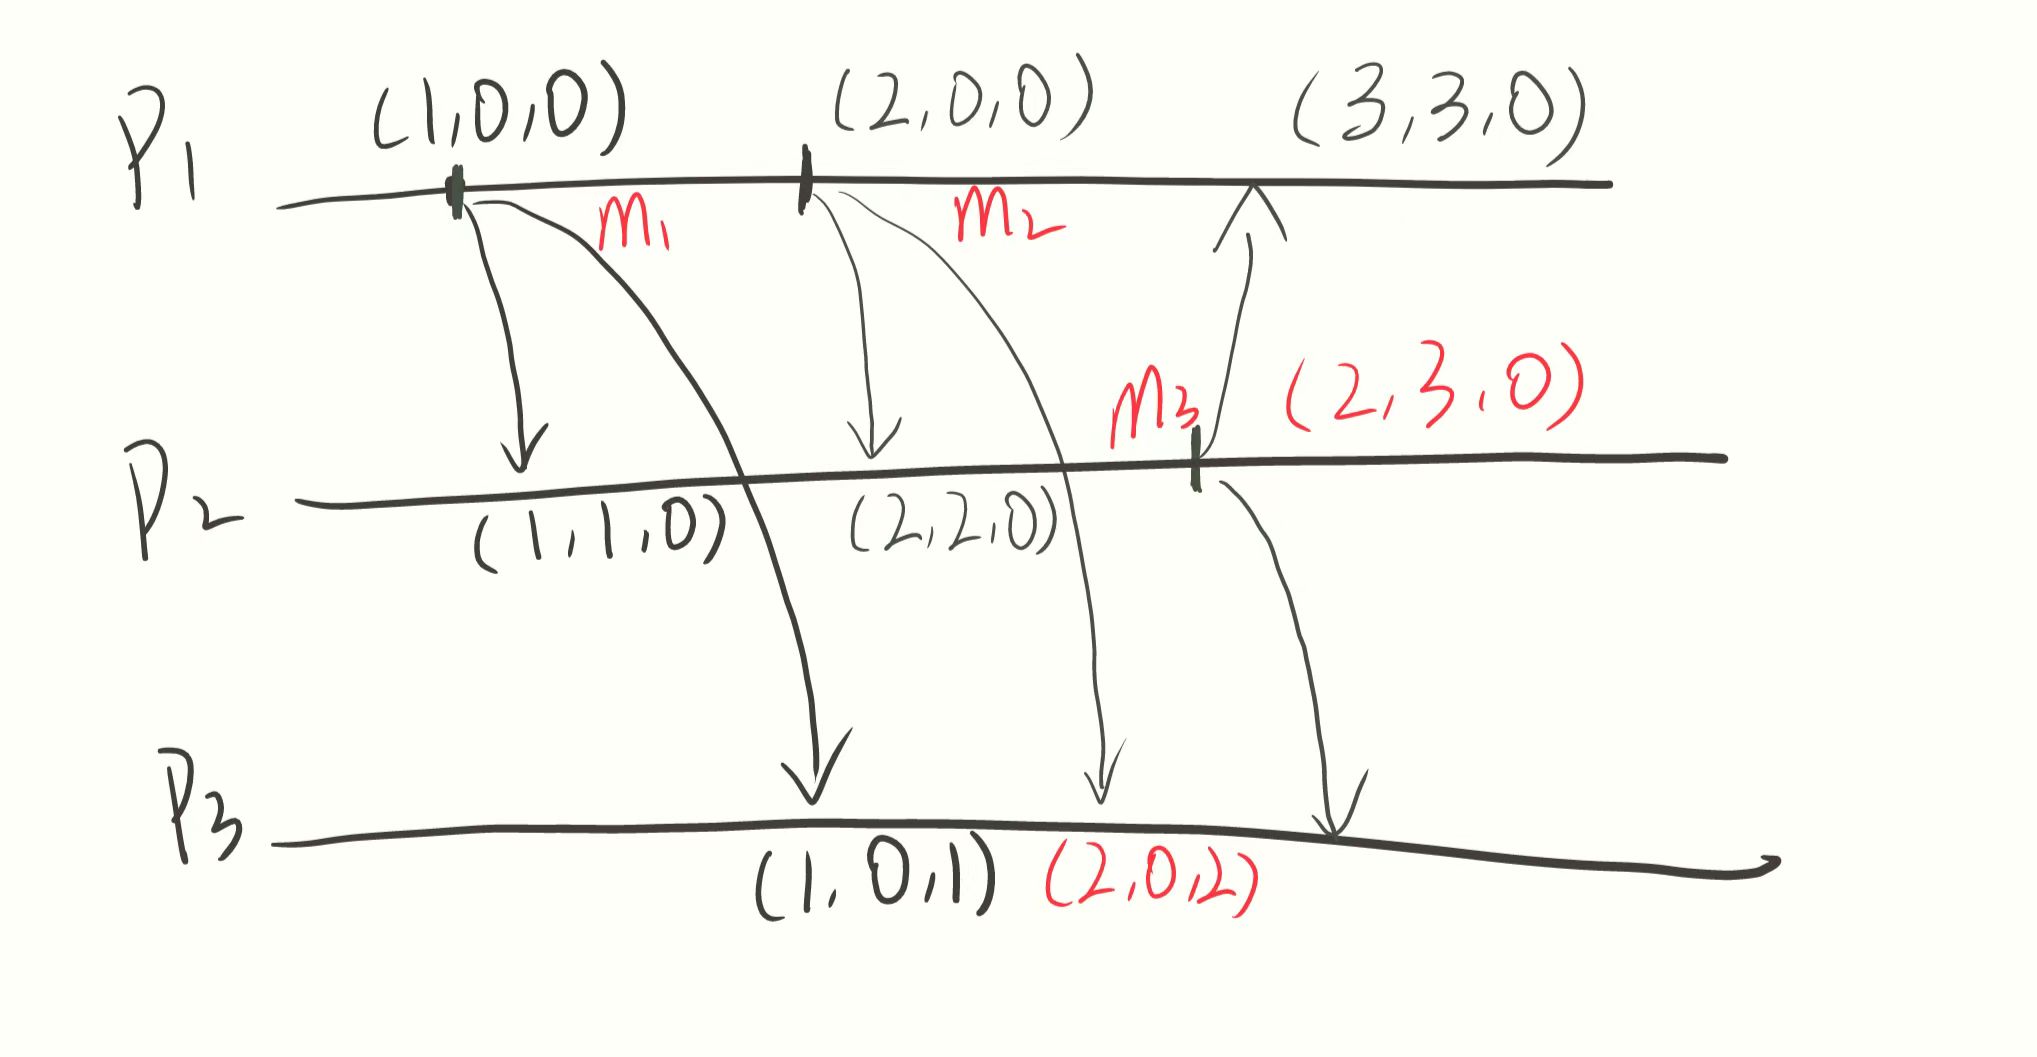 P1 (1,0,0) (2,0,0) (3,3,0)
m1 m2
m3 (2,3,0)
P2 (1,1,0) (2,2,0)
P3 (1,0,1) (2,0,2)